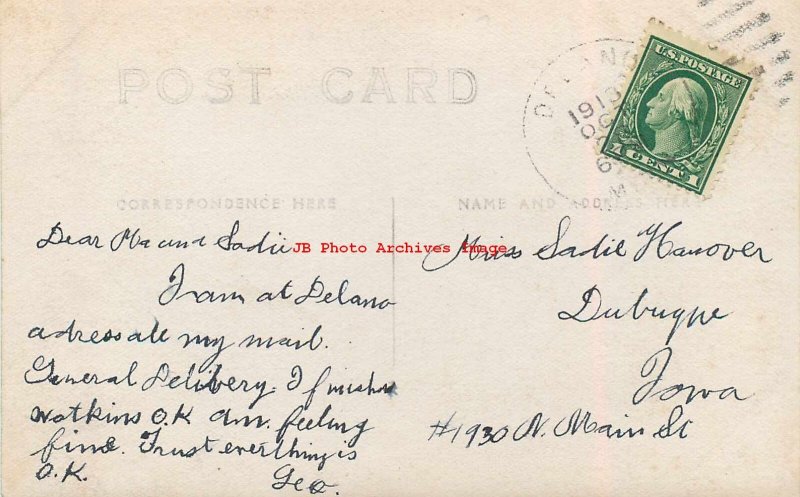 POST CARD
DELANO
1913
U.S. POSTAGE
1 CENT 1
CORRESPONDENCE HERE
NAME AND ADDRESS HERE
Dear Ma and Sadie
JB Photo Archives Image
I am at Delano
adress all my mail.
General Delibery. I finished
Watkins O.K am feeling
fine. Trust everthing is
O.K.
Geo.
Miss Sadie Hanover
Dubuqye
Iowa
#1930 N. Main St